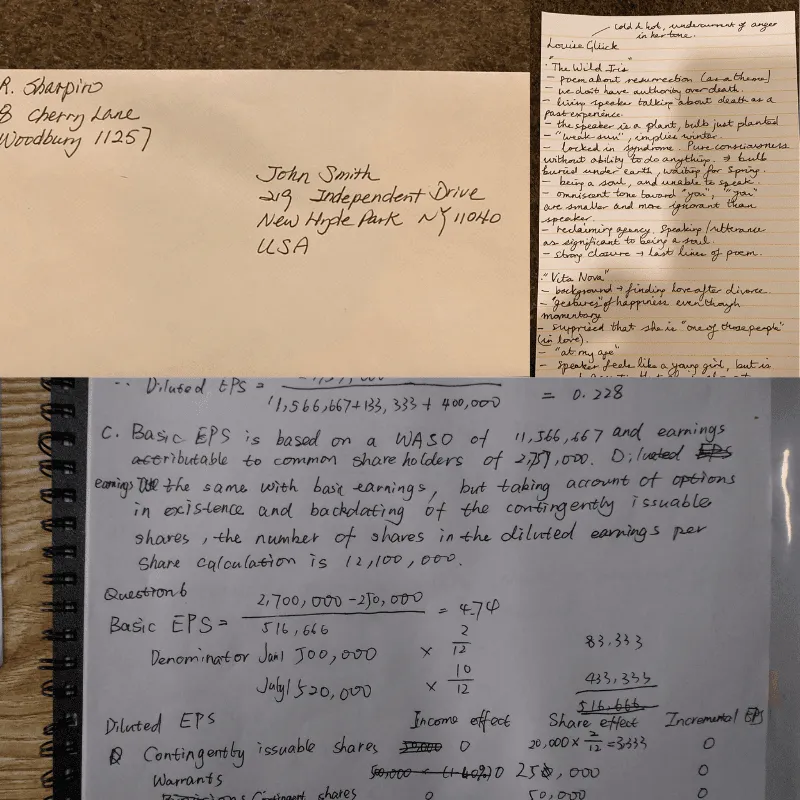 R. Sharpiro
8 Cherry Lane
Woodbury 11257
John Smith
219 Independent Drive
New Hyde Park NY 11040
USA
cold & hot, undercurrent of anger
in her tone.
Louise Glück
"The Wild Iris"
- poem about resurrection (as a theme)
- we don't have authority over death.
- living speaker talking about death as a
past experience.
- the speaker is a plant, bulb just planted
- "weak sun", implies winter.
- locked in syndrome. Pure consciousness
without ability to do anything. → bulb
buried under earth, waiting for Spring.
- being a soul, and unable to speak.
- omniscient tone toward "you", "you"
are smaller and more ignorant than
speaker.
- reclaiming agency. Speaking/utterance
as significant to being a soul.
- strong closure → last lines of poem.
"Vita Nova"
- background → finding love after divorce.
- "gestures" of happiness even though
momentary
- surprised that she is "one of those people"
(in love).
- "at my age"
- speaker feels like a young girl, but is
∴ Diluted EPS =
11,566,667+133,333+400,000 = 0.228
C. Basic EPS is based on a WASO of 11,566,667 and earnings
attributable to common shareholders of 2,757,000. Diluted EPS
earnings the same with basic earnings, but taking account of options
in existence and backdating of the contingently issuable
shares, the number of shares in the diluted earnings per
share calculation is 12,100,000.
Question 6
Basic EPS = 2,700,000 - 250,000 / 516,666 = 4.74
Denominator Jan 1 500,000 × 2/12 83,333
July 1 520,000 × 10/12 433,333
516,666
Diluted EPS Income effect Share effect Incremental EPS
Contingently issuable shares 0 20,000 × 2/12 = 3,333 0
Warrants 0 250,000 0
Contingent shares 0 50,000 0